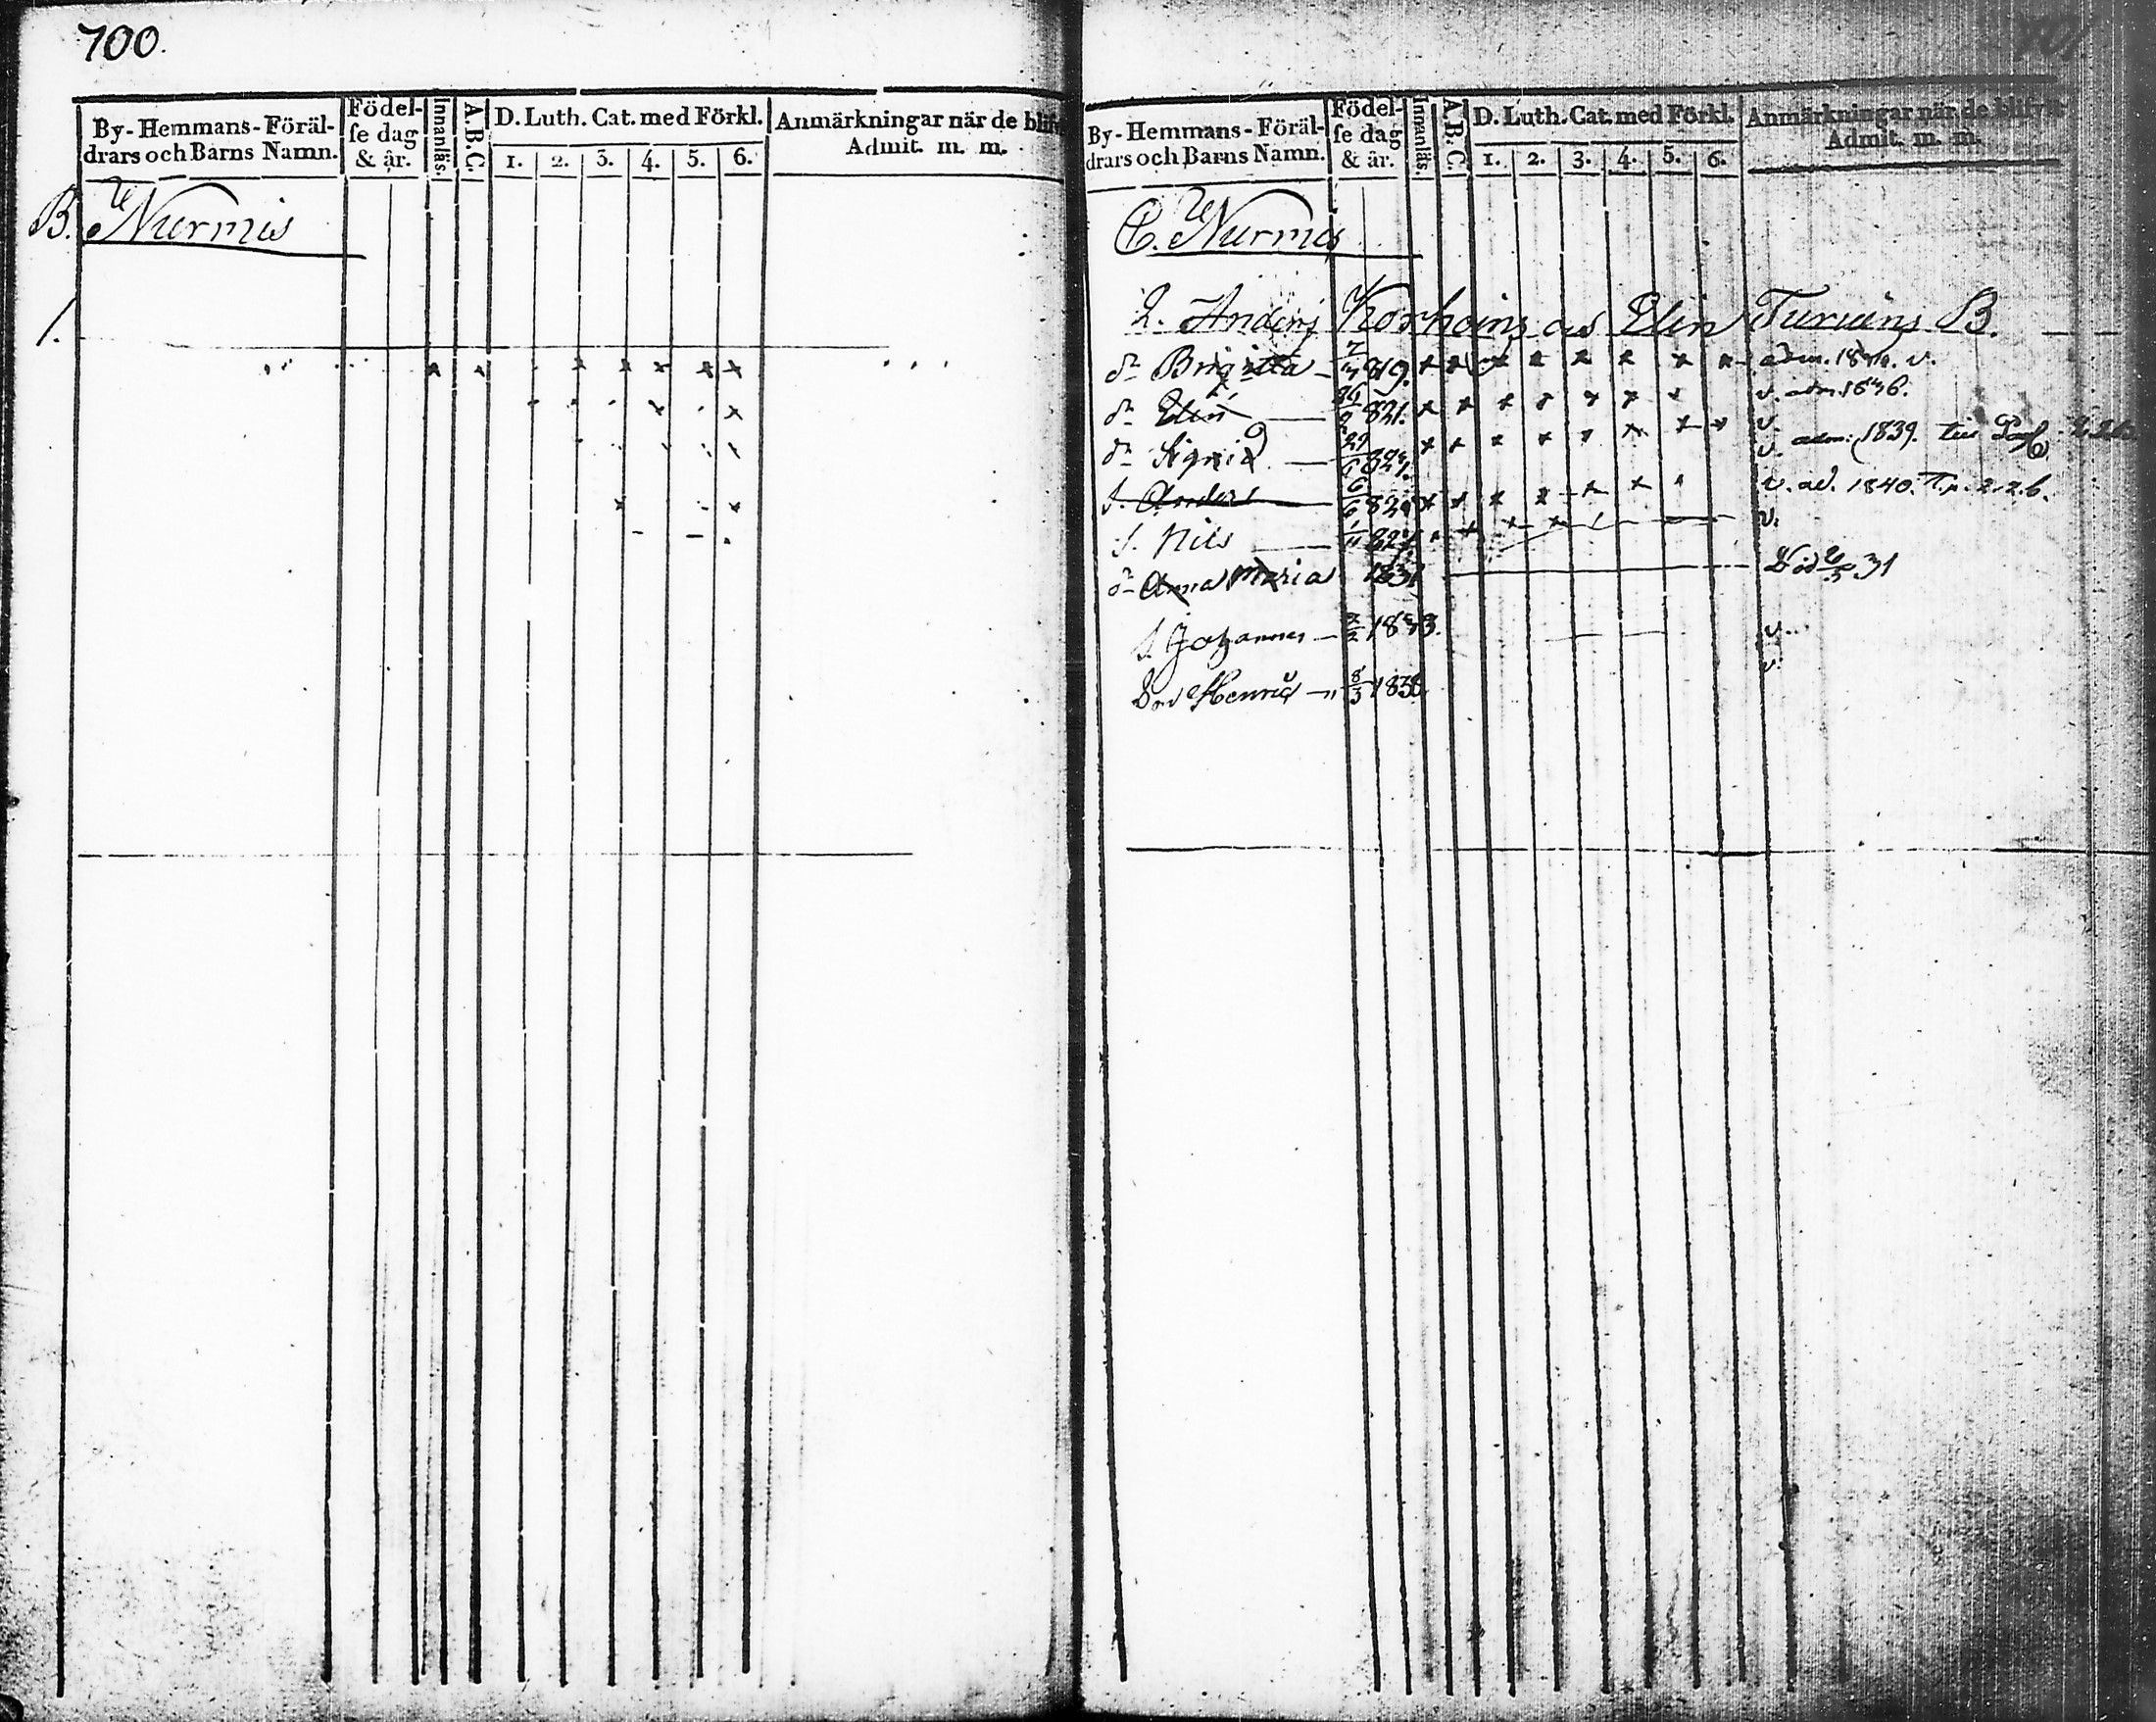 700.
By-Hemmans-Föräl-
drars och Barns Namn.
Födel-
se dag
& år.
Innanläs.
A. B. C.
D. Luth. Cat. med Förkl.
1. 2. 3. 4. 5. 6.
Anmärkningar när de blifv
Admit. m. m.
B. Nurmis
1.
701.
By-Hemmans-Föräl-
drars och Barns Namn.
Födel-
se dag
& år.
Innanläs.
A. B. C.
D. Luth. Cat. med Förkl.
1. 2. 3. 4. 5. 6.
Anmärkningar när de blifvit
Admit. m. m.
C. Nurmis
2. Anders Korhoins as Elin Turuins B.
dr Brigitta 819. adm. v.
dr Elin 821. v. adm 1836.
dr Sigrid v. adm: 1839.
s. Anders v. ad. 1840.
s. Nils v.
dr Anna Maria 1831 Död 31
s. Johannes 2/2 1833. v.
v.
Henric 8/3 1836